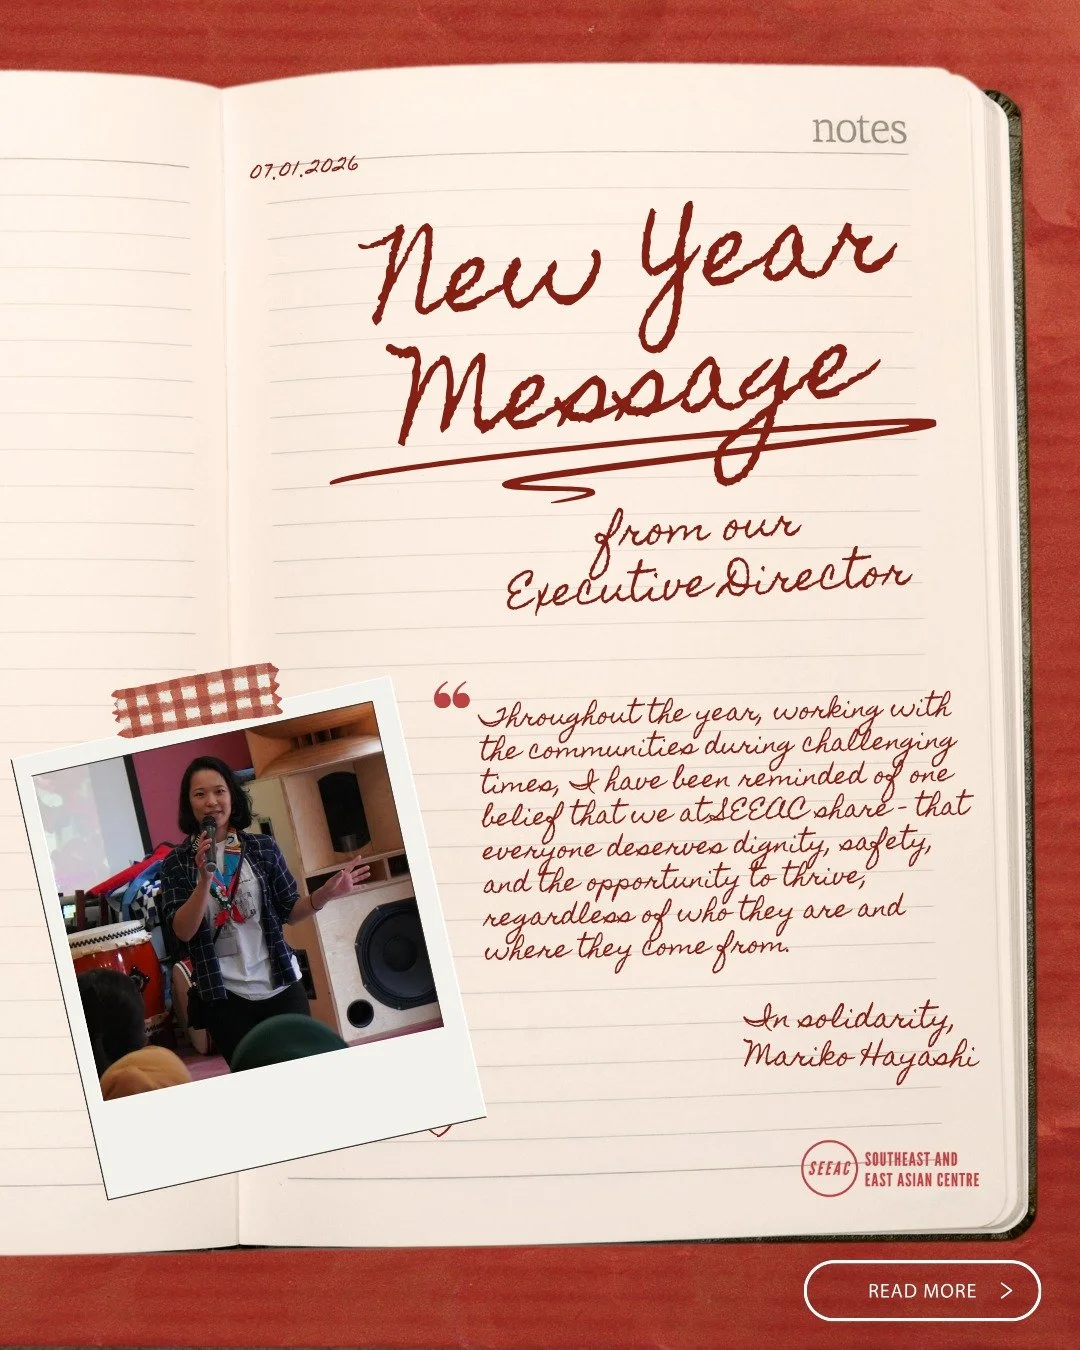 notes
07.01.2026
New Year
Message
from our
Executive Director
“ Throughout the year, working with
the communities during challenging
times, I have been reminded of one
belief that we at SEEAC share - that
everyone deserves dignity, safety,
and the opportunity to thrive,
regardless of who they are and
where they come from.
In solidarity,
Mariko Hayashi
SEEAC
SOUTHEAST AND
EAST ASIAN CENTRE
READ MORE >